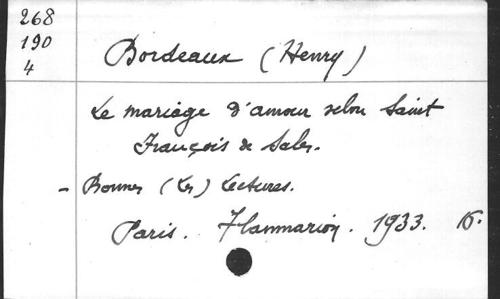 268
190
4
Bordeaux (Henry)
Le mariage d'amour selon Saint
François de Sales.
- Bonnes (Les) Lectures.
Paris. Flammarion. 1933. 16.